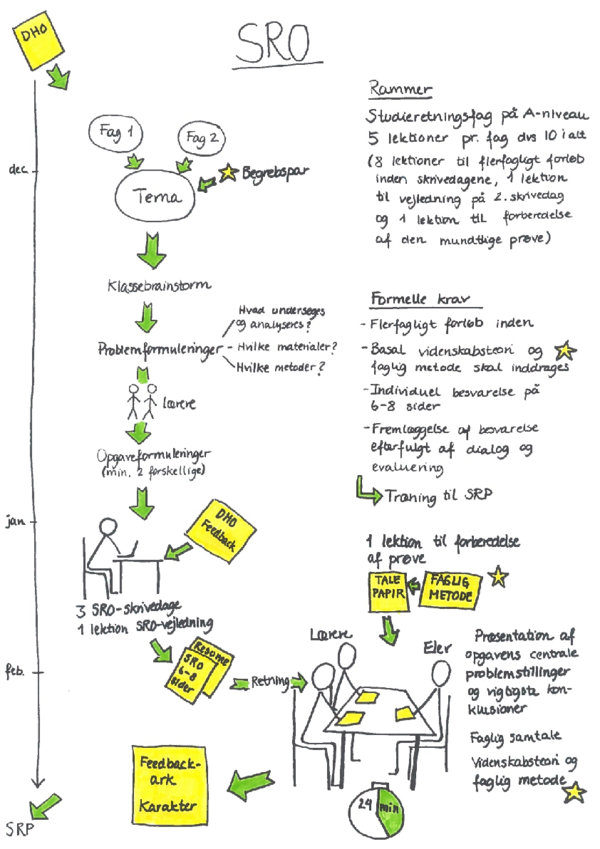 DHO
SRO
Fag 1
Fag 2
Begrebspar
Tema
Klassebrainstorm
Problemformuleringer
Hvad undersøges
og analyseres?
Hvilke materialer?
Hvilke metoder?
lærere
Opgaveformuleringer
(min. 2 forskellige)
DHO
Feedback
3 SRO-skrivedage
1 lektion SRO-vejledning
Resume
SRO
6-8
sider
Retning
dec.
jan.
feb.
SRP
Rammer
Studieretningsfag på A-niveau
5 lektioner pr. fag dvs 10 i alt
(8 lektioner til flerfagligt forløb
inden skrivedagene, 1 lektion
til vejledning på 2. skrivedag
og 1 lektion til forberedelse
af den mundtlige prøve)
Formelle krav
- Flerfagligt forløb inden
- Basal videnskabsteori og
faglig metode skal inddrages
- Individuel besvarelse på
6-8 sider
- Fremlæggelse af besvarelse
efterfulgt af dialog og
evaluering
Træning til SRP
1 lektion til forberedelse
af prøve
TALE
PAPIR
FAGLIG
METODE
Lærere
Elev
Præsentation af
opgavens centrale
problemstillinger
og vigtigste kon-
klusioner
Faglig samtale
Videnskabsteori og
faglig metode
24 min
Feedback-
ark
Karakter